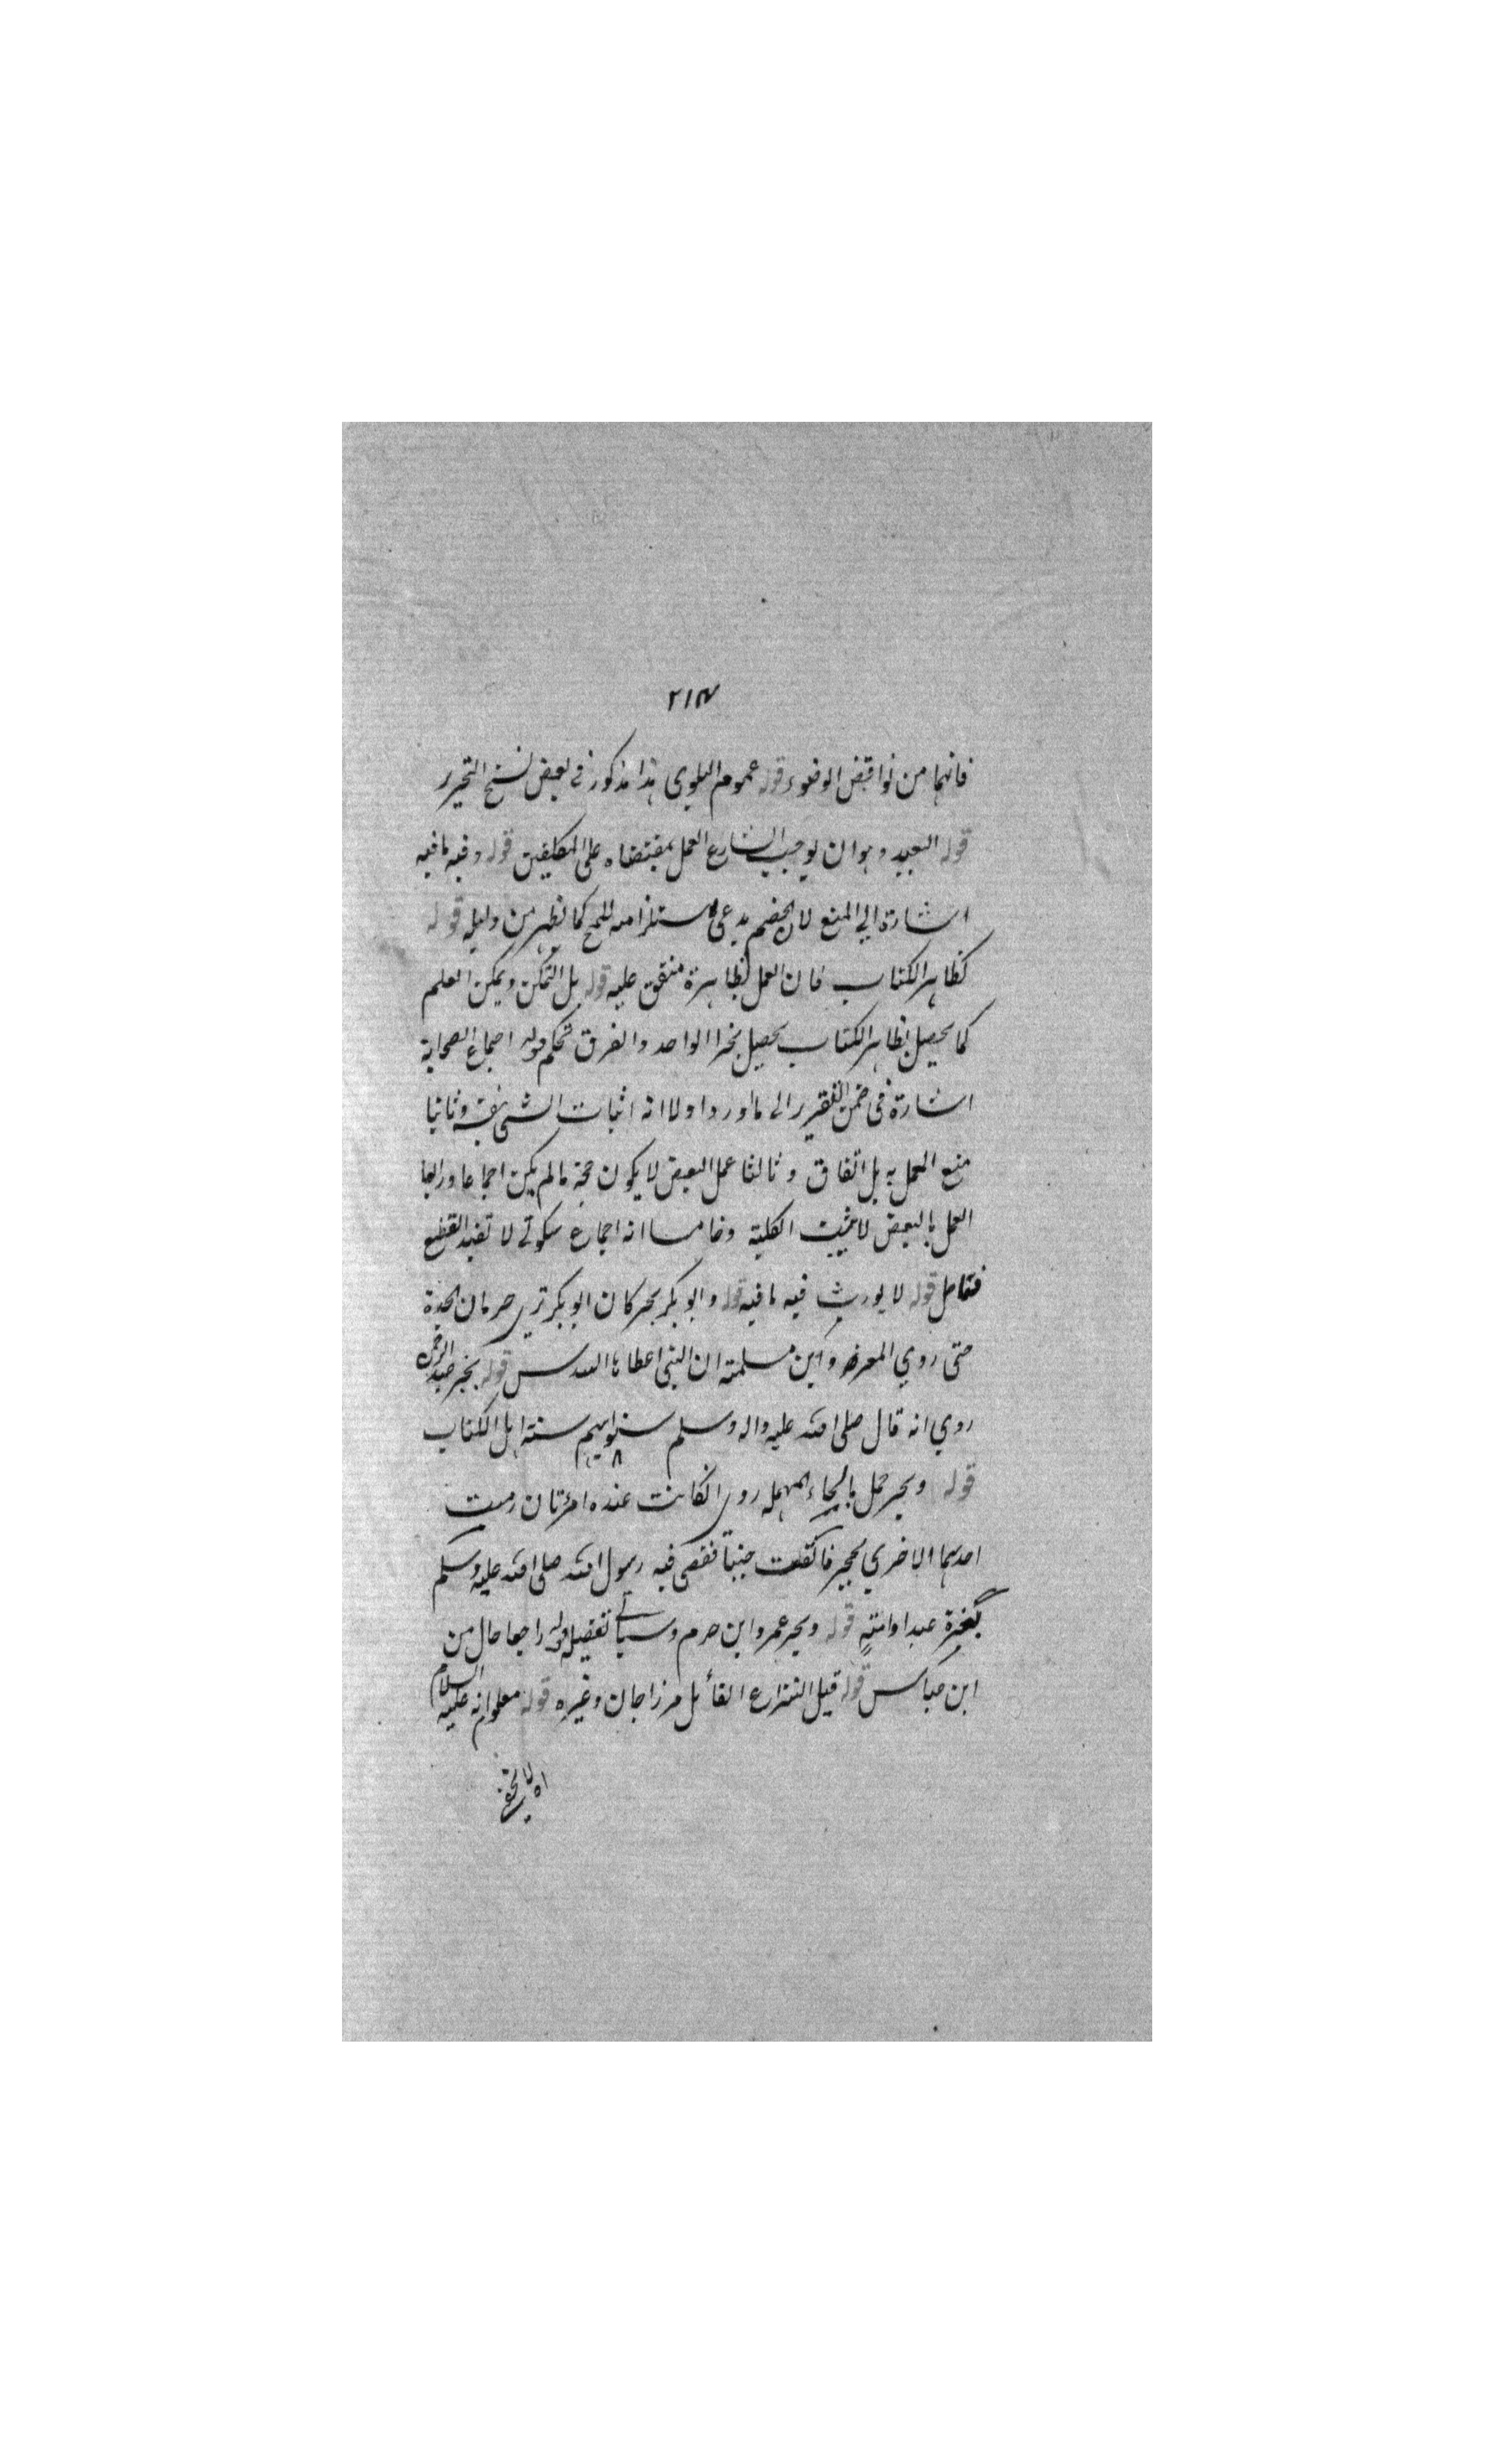 ٢١٧
فانهما من نواقض الوضوء قوله عموم البلوى هذا مذكور في بعض نسخ التحرير
قوله التعبيد وهو ان يوجب الشارع العمل بمقتضاه على المكلفين قوله وفيه ما فيه
اشارة الي المنع لان الخصم يدعى استلزامه للمح كما يظهر من دليله قوله
كظاهر الكتاب فان العمل بظاهرة متفق عليه قوله بل التمكن ويمكن العلم
كما يحصل بظاهر الكتاب يحصل بخبرا الواحد والفرق تحكم قوله اجماع الصحابة
اشارة في ضمن التقرير الى ما اورد اولا انه اثبات الشئ بنفسه وثانيا
منع العمل به بل اتفاق وثالثا عمل البعض لا يكون حجة ما لم يكن اجماعا ورابعا
العمل بالبعض لا يثبت الكلية وخامسا انه اجماع سكوتي لا تفيد القطع
فتامل قوله لا يورث فيه ما فيه قوله وابو بكر بخبر كان ابو بكر يري حرمان الجدة
حتى روي المعره وابن مسلمة ان النبي اعطاها السدس قوله بخبر عبد الرحمن
روي انه قال صلى الله عليه واله وسلم سنوا بهم سنة اهل الكتاب
قوله وبخبر حمل بالحاء المهملة روي انكانت عنده امرءتان رمت
احدهما الاخري بحجر فالقت جنينا فقضى فيه رسول الله صلى الله عليه وسلم
بغرة عبد او امة قوله وبخبر عمرو ابن حزم وسياتي تفصيله قوله راجعا حال من
ابن عباس قوله قيل النزاع القائل مرزا جان وغيره قوله معلوم انه عليه السلام